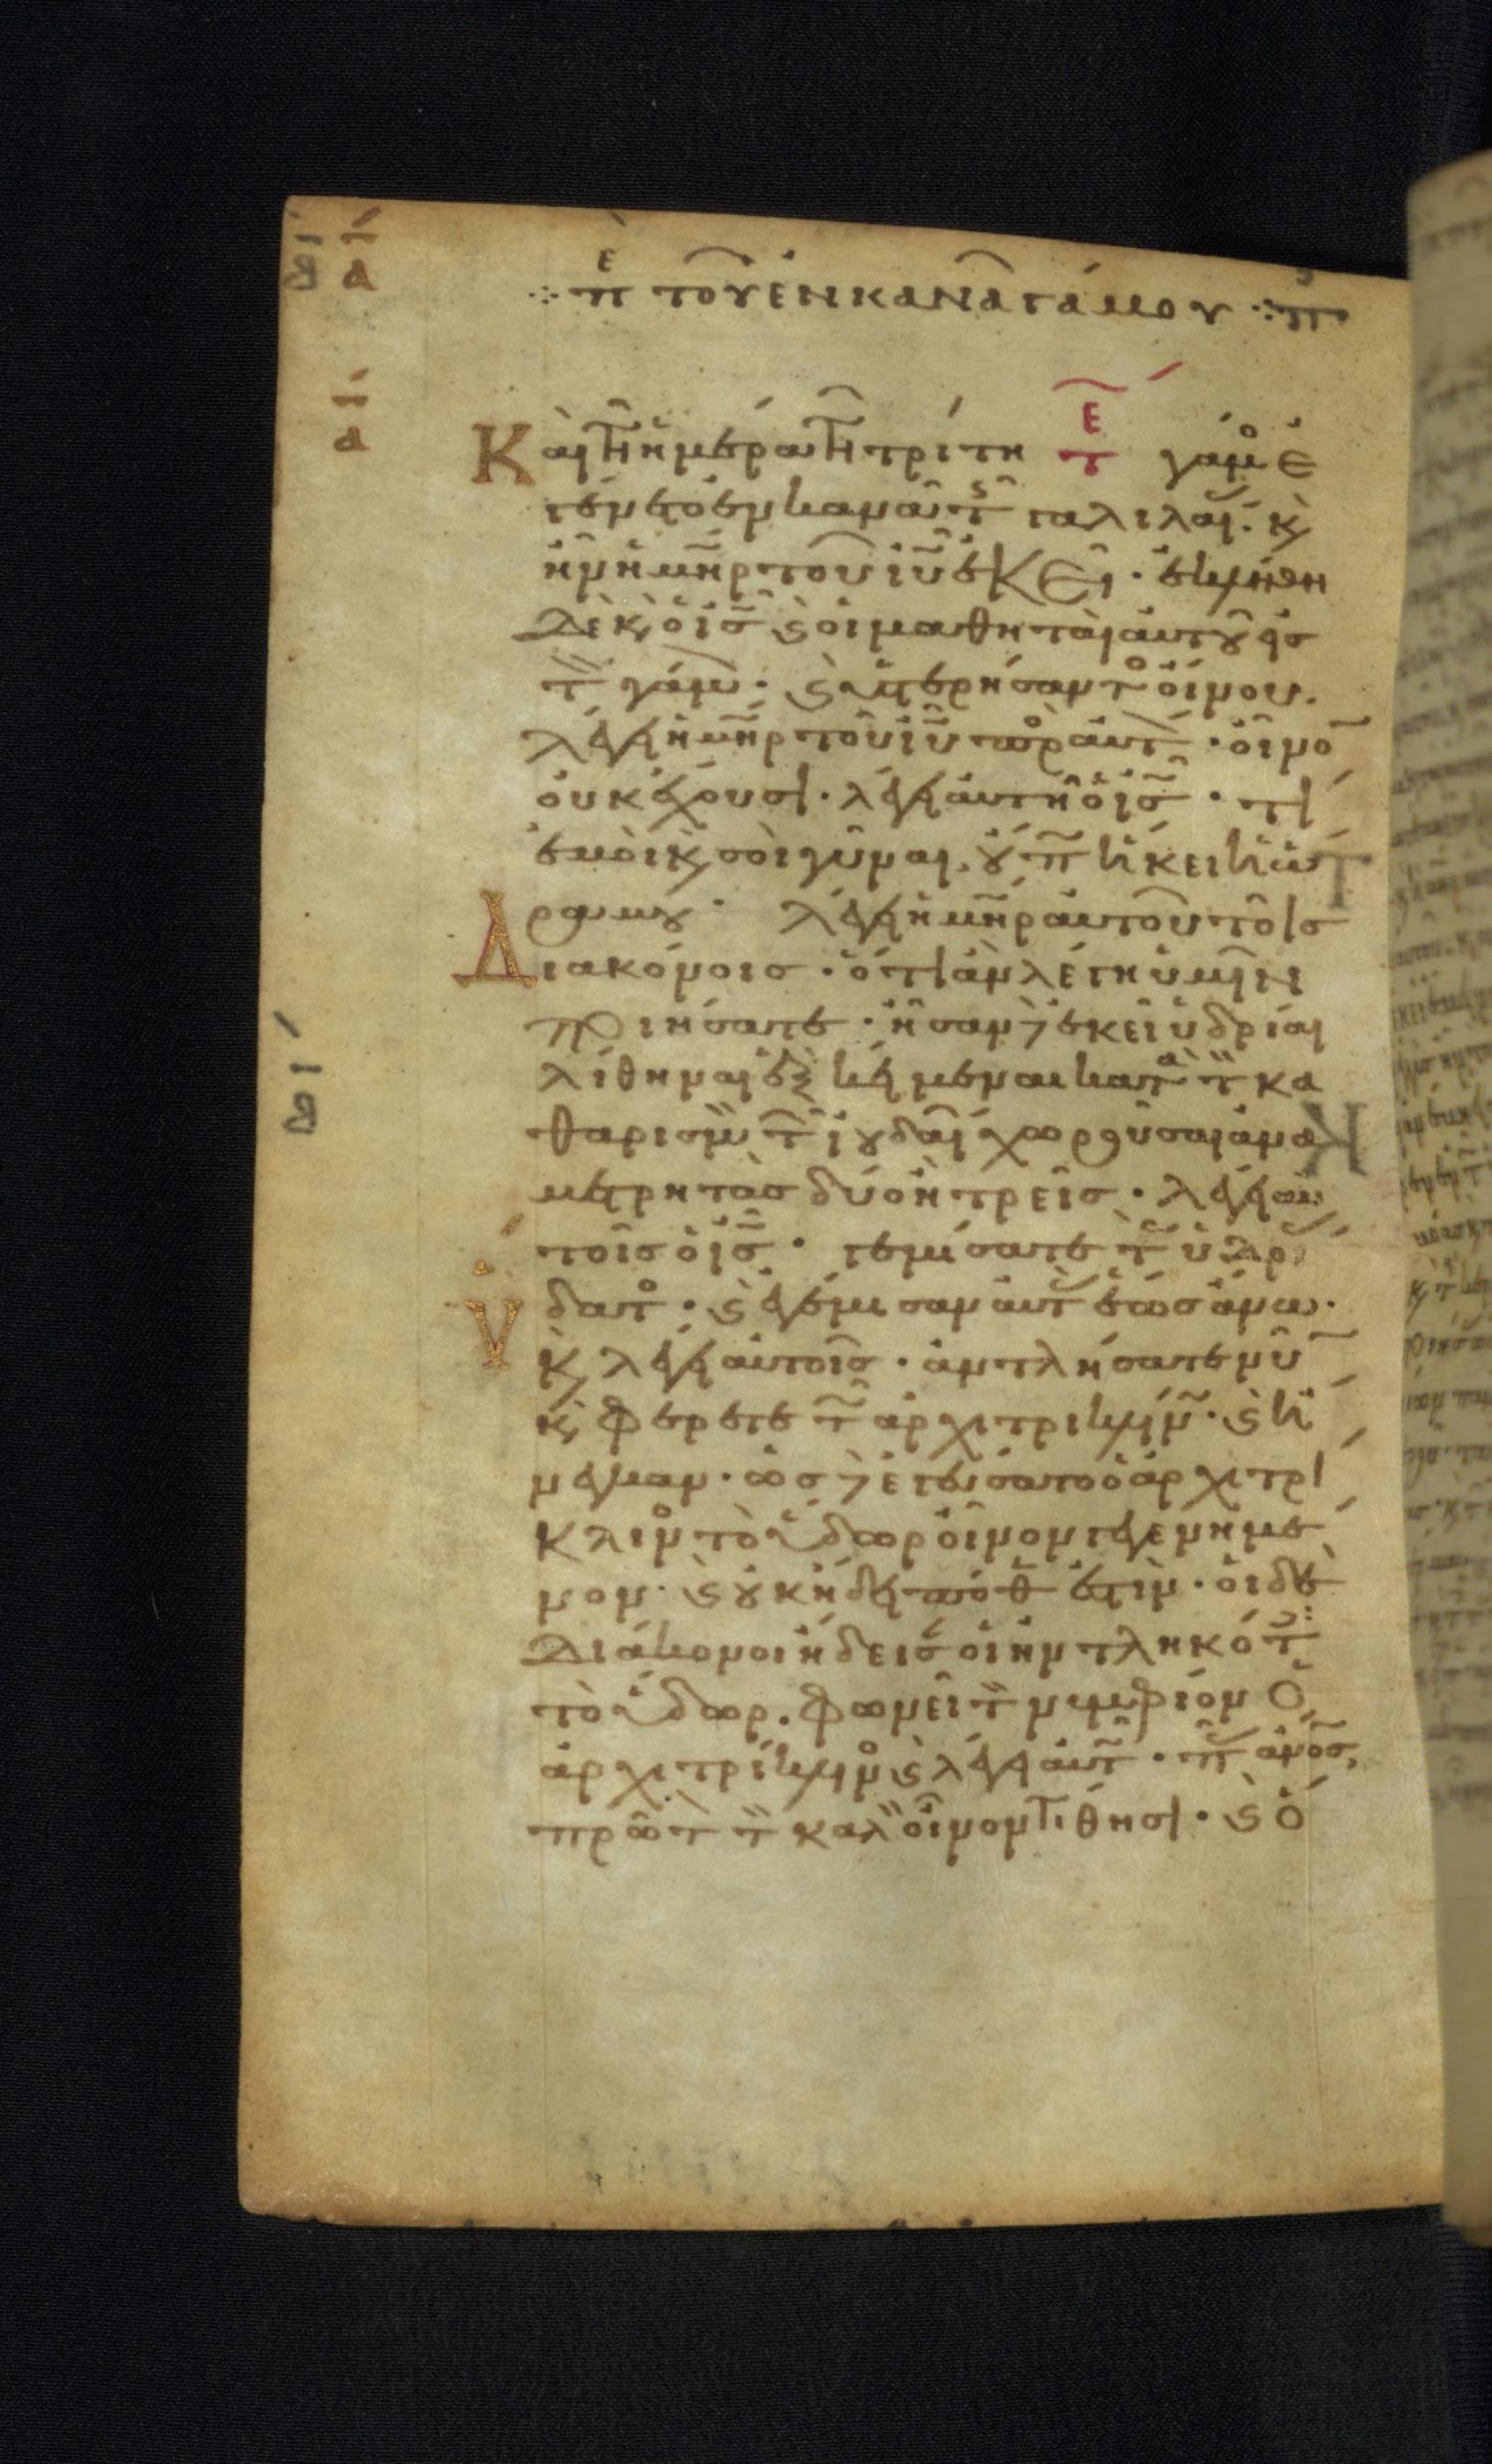 β ά
πε τοῦ ἐν κανᾶ γάμου
ά
Καὶ τῆ ἡμέρα τῆ τρίτη τε γάμο ἐ
γένετο ἐν κανᾶ τῆς γαλιλαί· κ
ἦν ἡ μηρ τοῦ ιυ ἐκεῖ· ἐκλήθη
δὲ κ ὁ ις κ οἱ μαθηταὶ αὐτοῦ εἰς
τ γάμ· κ ὑστερήσαντο οἴνου.
λέγει ἡ μηρ τοῦ ιυ προ αὐτ· οἶνο
οὐκ ἔχουσι· λέγει αὐτῆ ὁ ις· τί
ἐμοὶ κ σοὶ γύναι. οὔπ ἥκει ἡ ὥ
ρα μου· λέγει ἡ μηρ αὐτοῦ τοῖς
Διακόνοις· ὅτι ἂν λέγη ὑμῖν
ποιήσατε· ἦσαν δ ἐκεῖ ὑδρίαι
λίθιναι ἓξ κείμεναι κατὰ τ κα
θαρισμ τ ἰουδαί χωροῦσαι ἀνα
μετρητὰς δύο ἢ τρεῖς· λέγει αὐ
τοῖς ὁ ις· γεμίσατε τ ὑδρί
Ὕδατο· κ ἐγέμισαν αὐτ ἕως ἄνω·
κ λέγει αὐτοῖς· ἀντλήσατε νῦ
κ φέρετε τ ἀρχιτρικλίν· κ ἤ
νεγκαν· ὡς δ ἐγεύσατο ὁ ἀρχιτρί
κλινο τὸ ὕδωρ οἶνον γεγενημέ
νον· κ οὐκ ἤδει πόθ ἐστὶν· οἱ δὲ
διάκονοι ἤδεισ οἱ ἠντληκότ
τὸ ὕδωρ. φωνεῖ τ νυμφίον ὁ
ἀρχιτρίκλινο κ λέγει αὐτ· π ανος
πρῶτ τ καλ οἶνον τίθησι· κ ὁ
ιβ